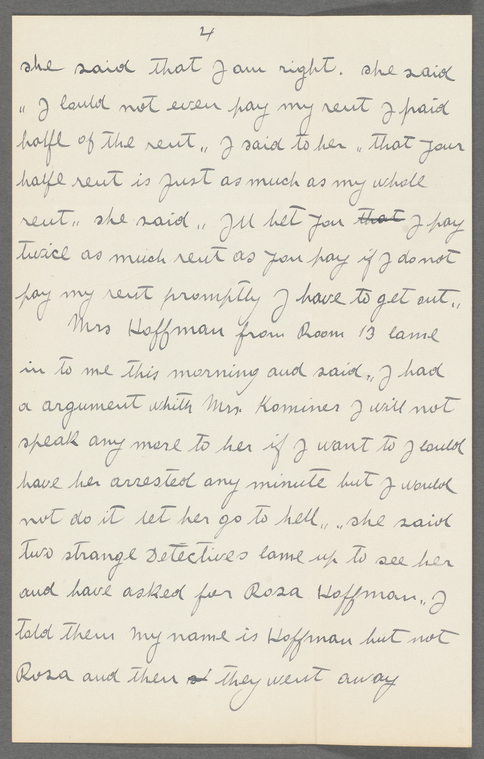 4
she said that I am right. she said
„ I could not even pay my rent I paid
halfe of the rent „ I said to her „ that your
halfe rent is just as much as my whole
rent „ she said „ I'll bet you that I pay
twice as much rent as you pay if I do not
pay my rent promptly I have to get out „
Mrs Hoffman from Room 13 came
in to me this morning and said „ I had
a argument whith Mrs. Kominer I will not
speak any more to her if I want to I could
have her arrested any minute but I would
not do it let her go to hell „ „ she said
two strange Detectives came up to see her
and have asked for Rosa Hoffman „ I
told them my name is Hoffman but not
Rosa and then they went away